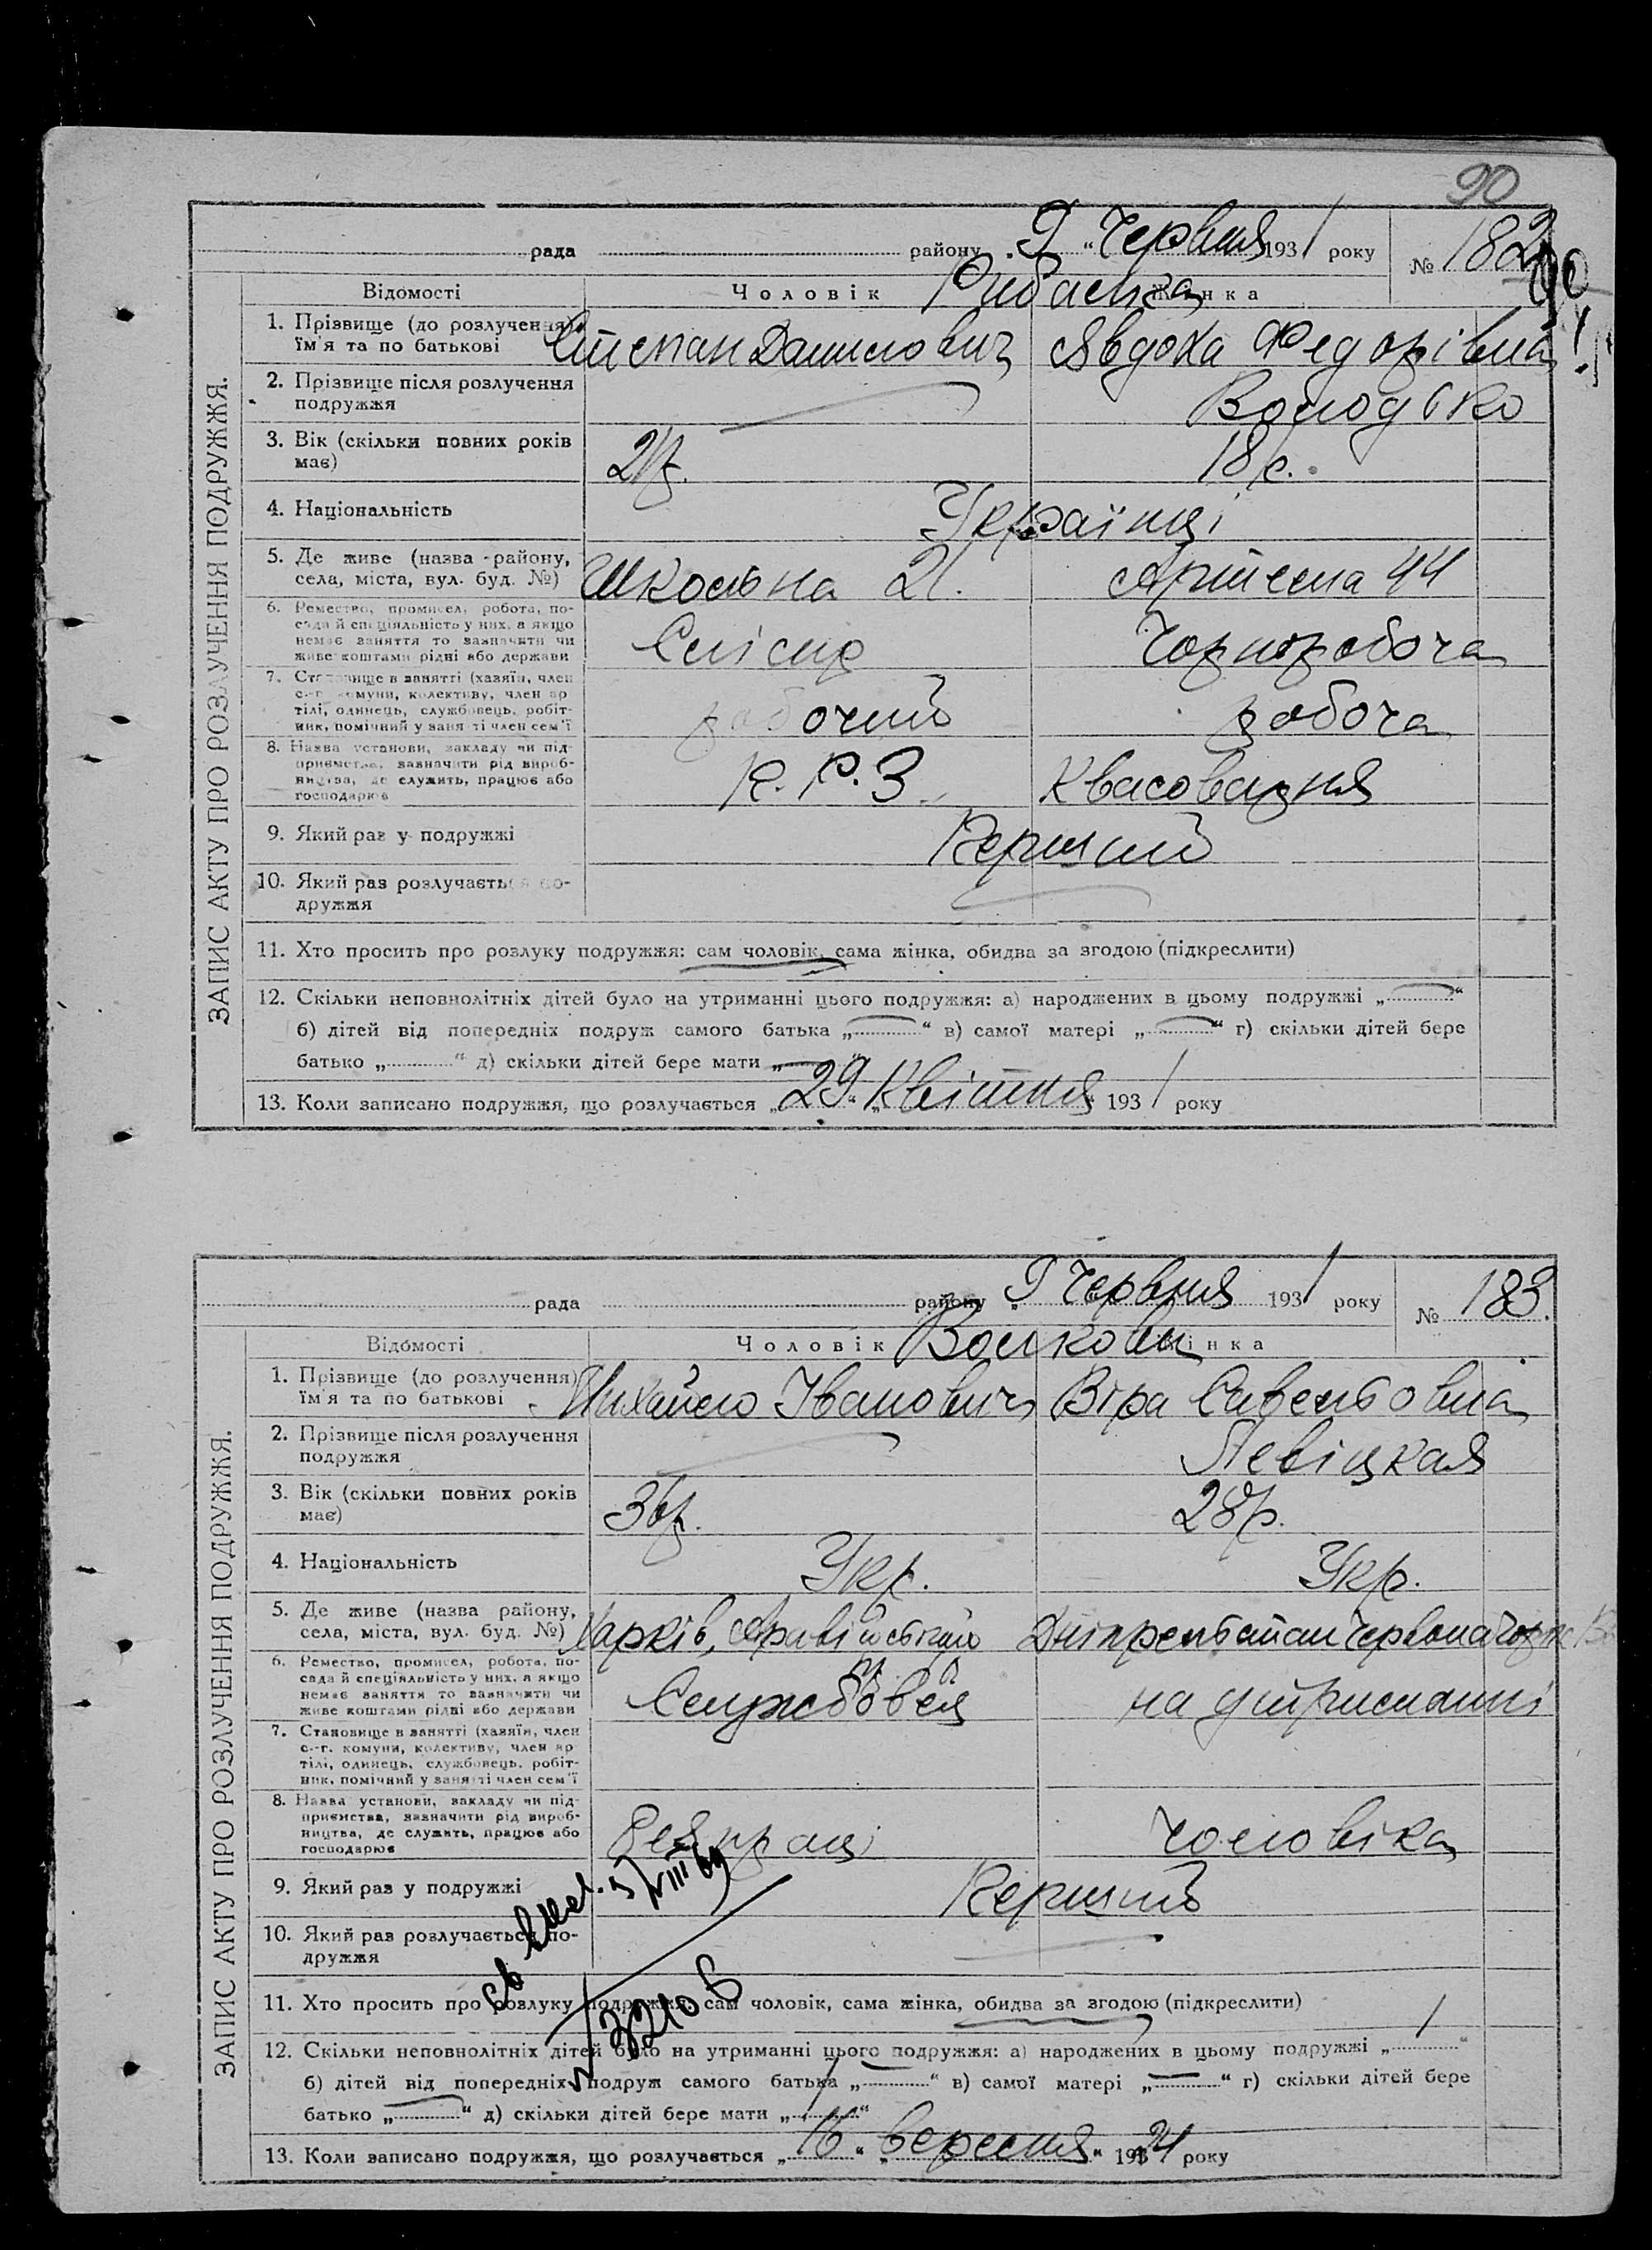 90
рада району „ 9 “ Червня 1931 року № 182
90
ЗАПИС АКТУ ПРО РОЗЛУЧЕННЯ ПОДРУЖЖЯ.
Відомості Чоловік Жінка
1. Прізвище (до розлучення) їм'я та по батькові
Степан Данилович Явдоха Федорівна
2. Прізвище після розлучення подружжя
Володько
3. Вік (скільки повних років має)
18 р.
4. Національність
Українці
5. Де живе (назва району, села, міста, вул. буд. №)
Школьна 21. Артема 44
6. Ремество, промисел, робота, посада й спеціяльність у них, а якщо немає заняття то зазначити чи живе коштами рідні або держави
Слісар Чорноробоча
7. Становище в занятті (хазяїн, член с.-г. комуни, колективу, член артілі, одинець, службовець, робітник, помічний у занятті член сем'ї
робочий робоча
8. Назва установи, закладу чи підприємства, зазначити рід виробництва, де служить, працює або господарює
К. Р. З. Квасоварня
9. Який раз у подружжі
Перший
10. Який раз розлучається подружжя
11. Хто просить про розлуку подружжя: сам чоловік, сама жінка, обидва за згодою (підкреслити)
12. Скільки неповнолітніх дітей було на утриманні цього подружжя: а) народжених в цьому подружжі „ “
б) дітей від попередніх подруж самого батька „ “ в) самої матері „ “ г) скільки дітей бере
батько „ “ д) скільки дітей бере мати „ “
13. Коли записано подружжя, що розлучається „29“ „Квітня“ 1931 року
рада району 9 Червня 1931 року № 183.
ЗАПИС АКТУ ПРО РОЗЛУЧЕННЯ ПОДРУЖЖЯ.
Відомості Чоловік Жінка
1. Прізвище (до розлучення) їм'я та по батькові
Михайло Іванович Віра Савельовна
2. Прізвище після розлучення подружжя
Левіцкая
3. Вік (скільки повних років має)
36 р. 28 р.
4. Національність
Укр. Укр.
5. Де живе (назва району, села, міста, вул. буд. №)
Харків,
6. Ремество, промисел, робота, посада й спеціяльність у них, а якщо немає заняття то зазначити чи живе коштами рідні або держави
на утриманні
7. Становище в занятті (хазяїн, член с.-г. комуни, колективу, член артілі, одинець, службовець, робітник, помічний у занятті член сем'ї
8. Назва установи, закладу чи підприємства, зазначити рід виробництва, де служить, працює або господарює
чоловіка
9. Який раз у подружжі
Перший
10. Який раз розлучається подружжя
11. Хто просить про розлуку подружжя: сам чоловік, сама жінка, обидва за згодою (підкреслити)
12. Скільки неповнолітніх дітей було на утриманні цього подружжя: а) народжених в цьому подружжі „1“
б) дітей від попередніх подруж самого батька „ “ в) самої матері „ “ г) скільки дітей бере
батько „ “ д) скільки дітей бере мати „1“
13. Коли записано подружжя, що розлучається „16“ „вересня“ року